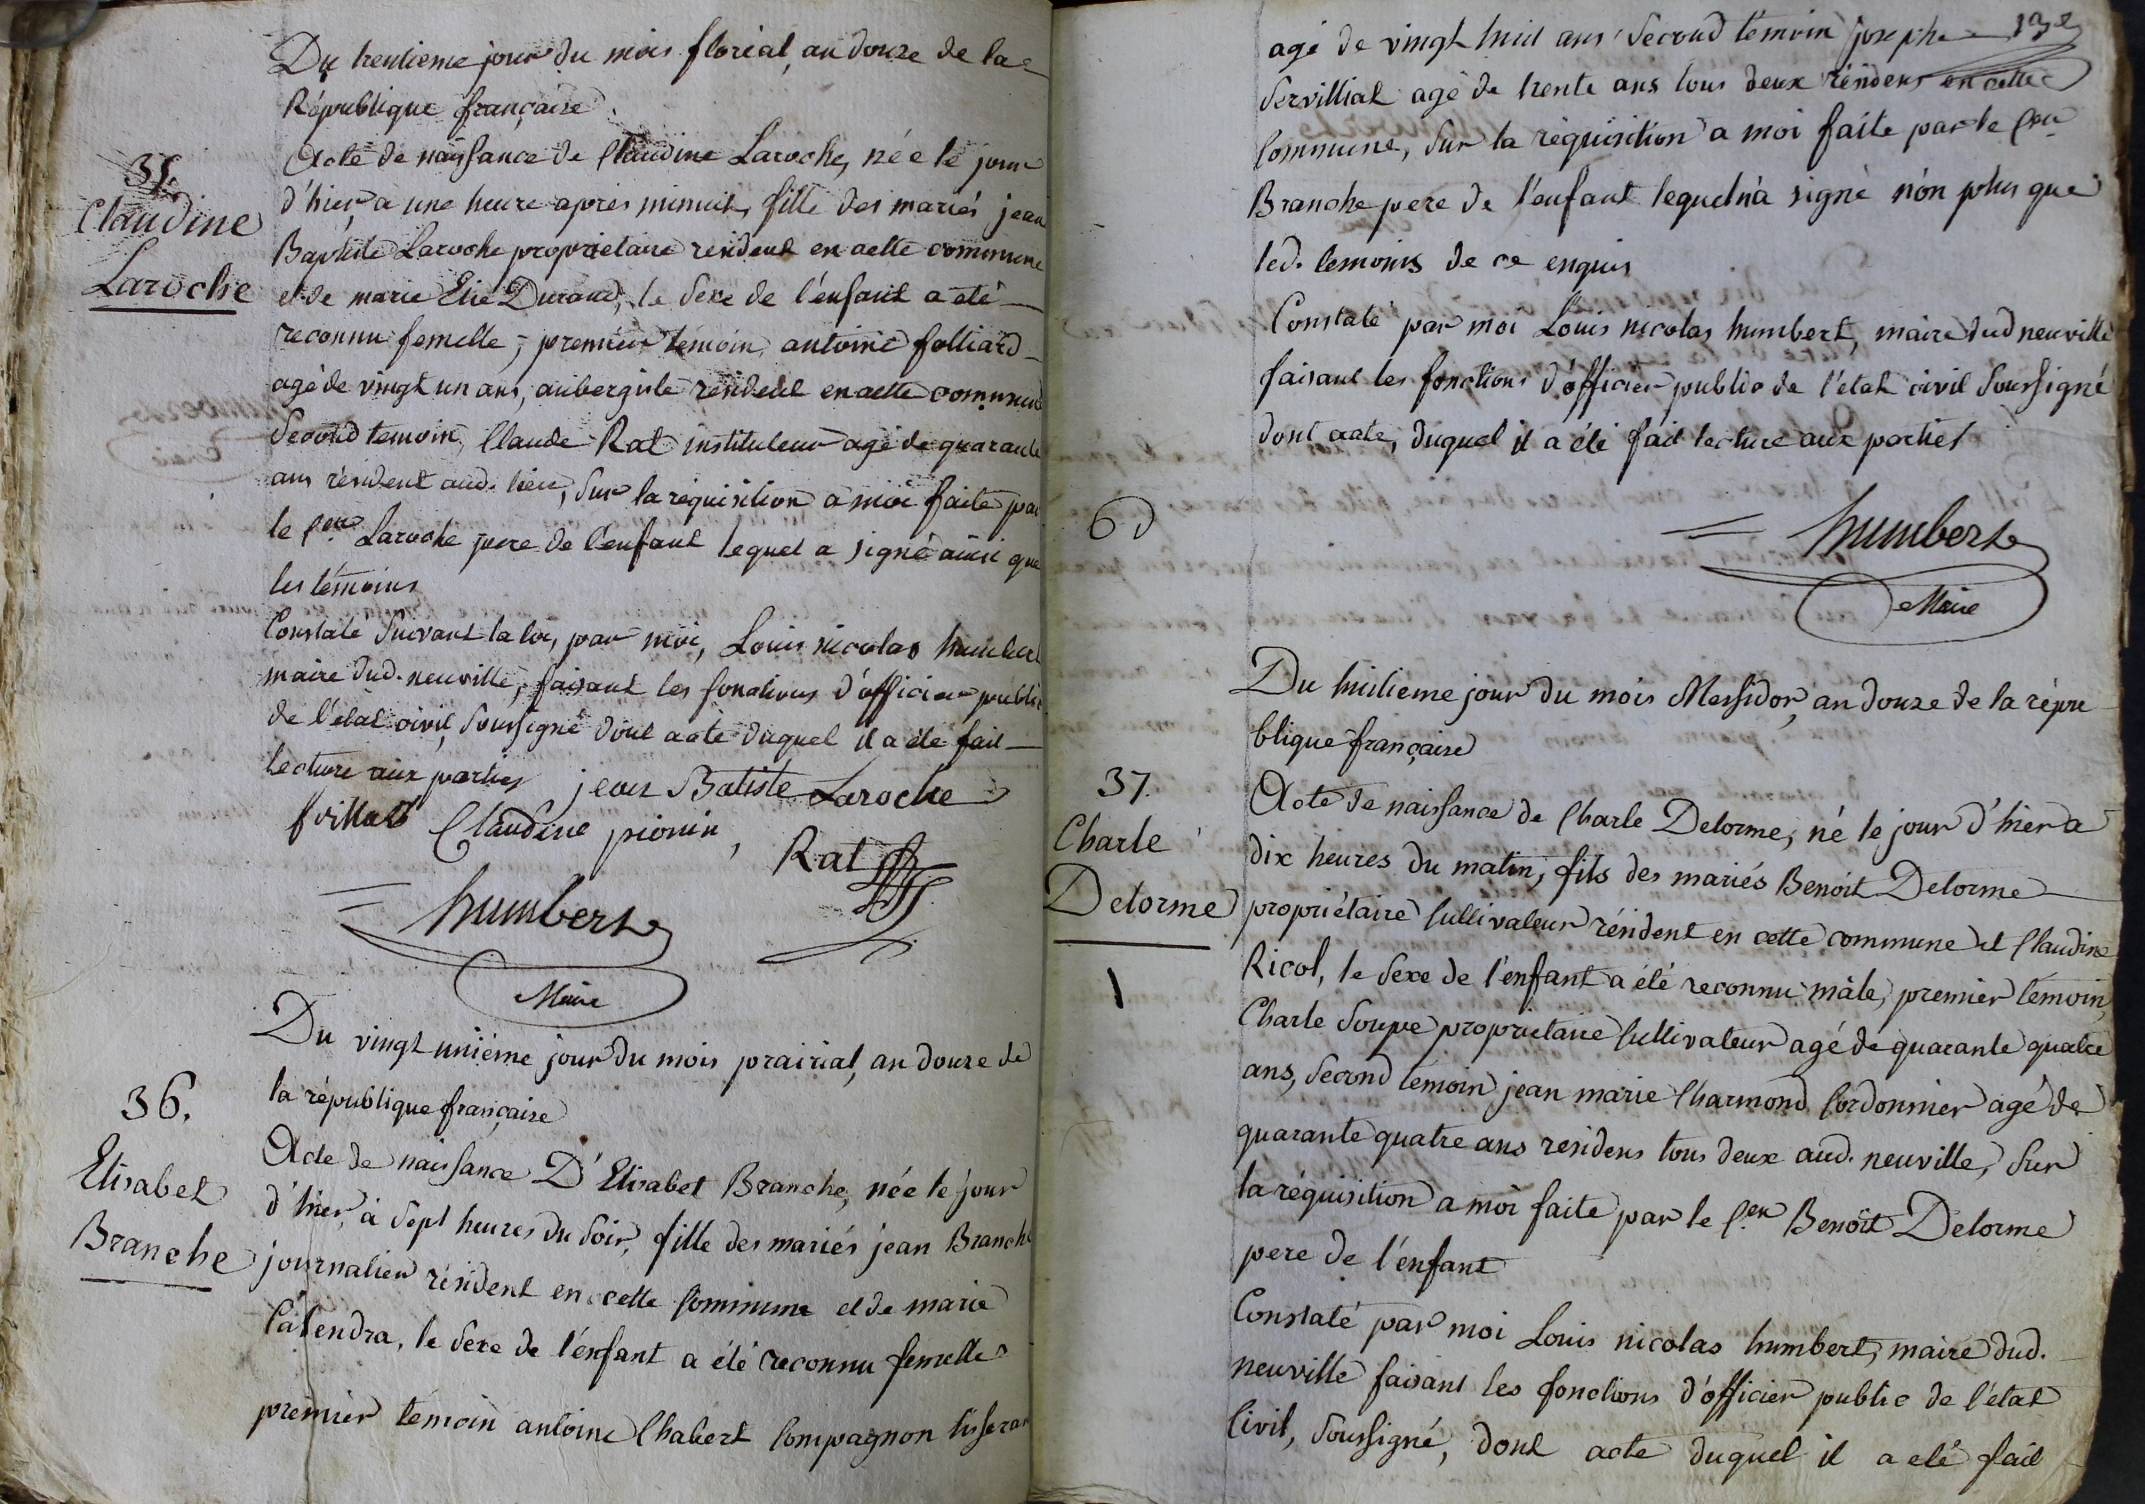 Du trentieme jour du mois floréal, an douze de la
République française
35.
Claudine
Laroche
Acte de naissance de Claudine Laroche, née le jour
d'hier a une heure apres minuit, fille des mariés jean
Baptiste Laroche propriétaire résident en cette commune
et de marie Elie Durand, le sexe de l'enfant a été
reconnu femelle, premier témoin, antoine folliard
agé de vingt un ans, aubergiste résident en cette commune
Second temoin, Claude Rat instituteur agé de quarante
ans résident aud. lieu, Sur la réquisition a moi faite par
le Cen Laroche pere de l'enfant lequel a signé ainsi que
les témoins
Constaté Suivant la loi, par moi, Louis nicolas humbert
maire dud. neuville, faisant les fonctions d'officier public
de l'état civil, Soussigné dont acte duquel il a été fait
lecture aux parties jean Batiste Laroche
Claudine pionin, Rat
humbert
Maire
Du vingt unième jour du mois prairial, an douze de
la république française
36.
Elisabet
Branche
Acte de naissance D'Elisabet Branche, née le jour
d'hier, à Sept heures du Soir, fille des mariés jean Branche
journalier résident en cette Commune et de marie
Calendra, le Sexe de l'énfant a été reconnu femelle
premier témoin antoine Chabert Compagnon tisseran
132
agé de vingt huit ans Second témoin joseph
Servilliat agé de trente ans tous deux résidens en cette
Commune, Sur la réquisition a moi faite par le Cen
Branche pere de l'enfant lequel n'a signé non plus que
led. temoins de ce enquis
Constaté par moi Louis nicolas humbert, maire dud neuville
faisant les fonctions d'officier public de l'état civil Soussigné
dont acte, duquel il a été fait lecture aux parties
6d
humbert
Maire
Du huitieme jour du mois Messidor, an douze de la répu
blique française
37.
Charle
Delorme
1
Acte de naissance de Charle Delorme, né le jour d'hier a
dix heures du matin, fils des mariés Benoit Delorme
propriétaire Cultivateur résident en cette commune et Claudine
Ricol, le Sexe de l'enfant a été reconnu mâle, premier témoin,
Charle Soupe propriétaire Cultivateur agé de quarante quatre
ans, Second témoin jean marie Charmond Cordonnier agé de
quarante quatre ans residens tous deux aud. neuville, Sur
la réquisition a moi faite par le C.en Benoit Delorme
pere de l'énfant
Constaté par moi Louis nicolas humbert, maire dud.
neuville faisant les fonctions d'officier public de l'état
Civil, Soussigné, dont acte duquel il a été fait